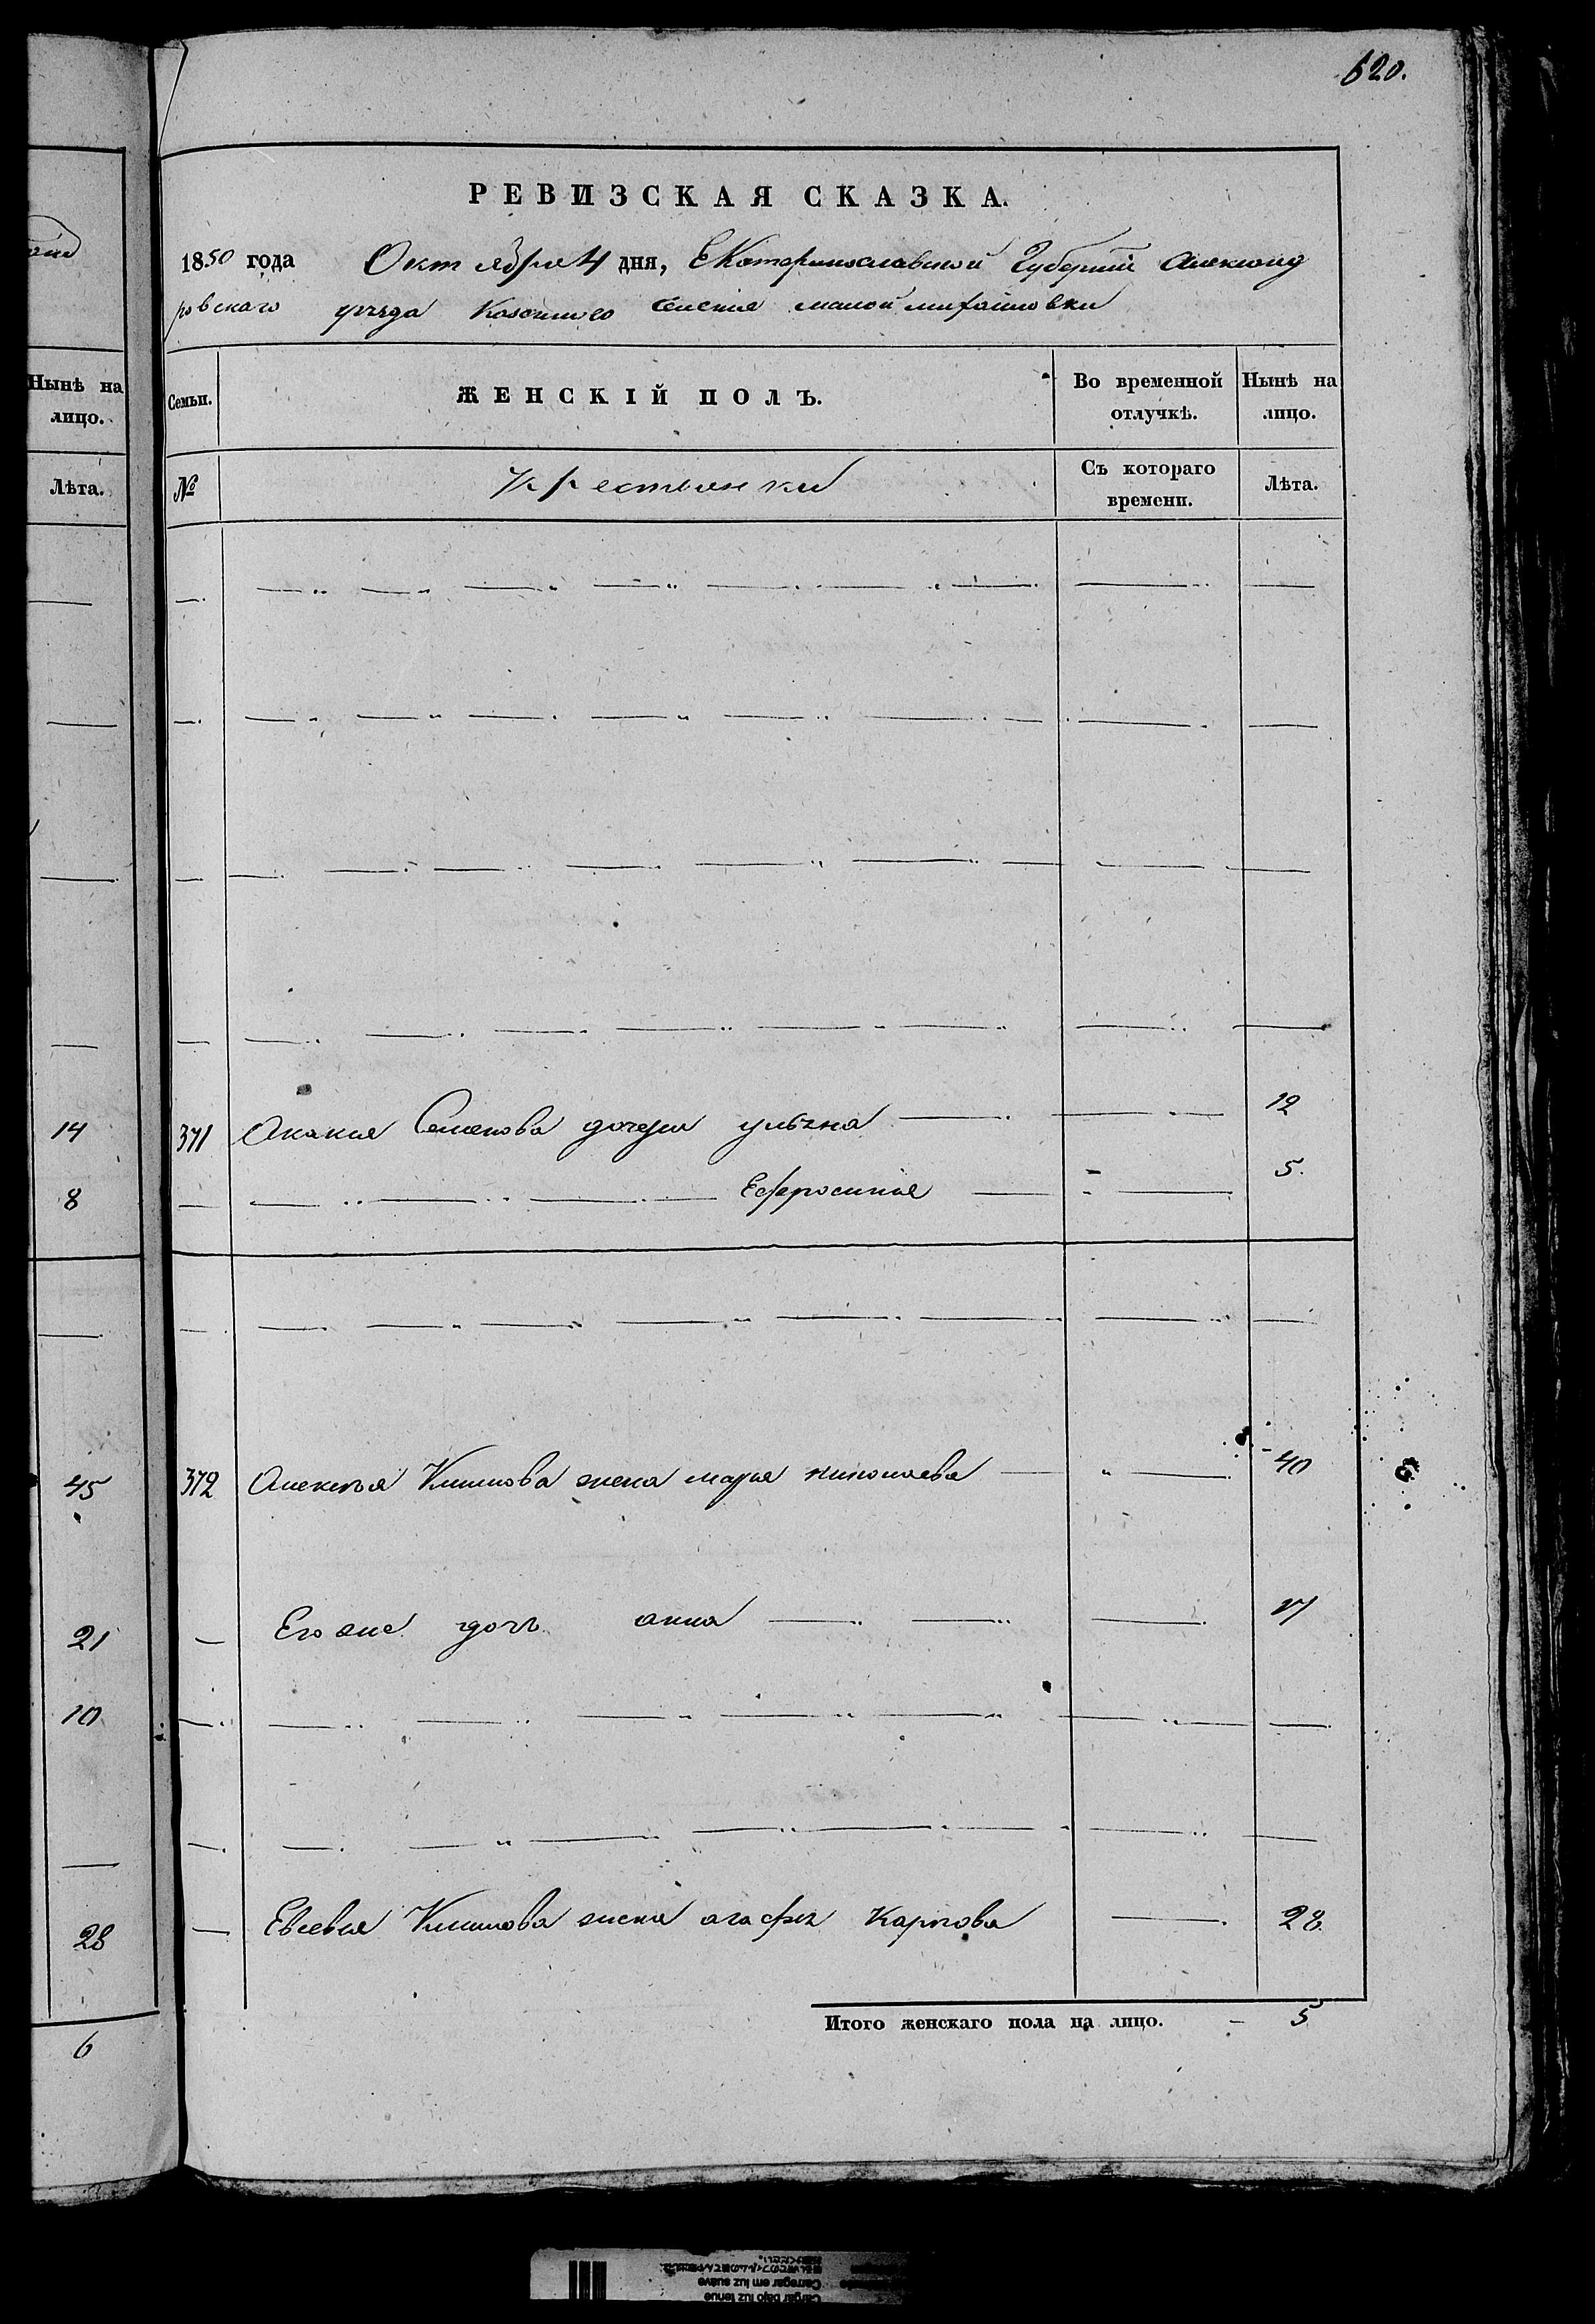 620.
РЕВИЗСКАЯ СКАЗКА.
1850 года Октября 4 дня, Екатеринославской Губерніи Александ
ровскаго уезда Казеннаго селения малой михайловки
Нынѣ на
лицо.
Лѣта.
14
8
45
21
10
28
6
Семьи.
ЖЕНСКІЙ ПОЛЪ.
Во временной
отлучкѣ.
Нынѣ на
лицо.
№
крестьянки
Съ котораго
времени.
Лѣта.
371 Семенова дочери ульяна 12
Ефросиния 5.
372 Алексея Климова жена марья николаева 40
Его же дочь анна
Евсевия Климова жена агафия Карпова 28.
Итого женскаго пола на лицо. 5